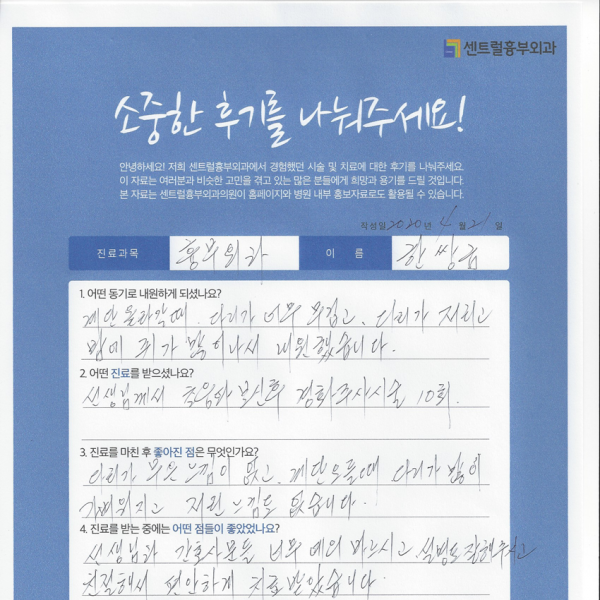 센트럴흉부외과
소중한 후기를 나눠주세요!
안녕하세요! 저희 센트럴흉부외과에서 경험했던 시술 및 치료에 대한 후기를 나눠주세요.
이 자료는 여러분과 비슷한 고민을 겪고 있는 많은 분들에게 희망과 용기를 드릴 것입니다.
본 자료는 센트럴흉부외과의원이 홈페이지와 병원 내부 홍보자료로도 활용될 수 있습니다.
작성일 2020년 4월 21일
진료과목 흉부외과 이 름 한쌍금
1. 어떤 동기로 내원하게 되셨나요?
계단 올라갈때. 다리가 너무 무겁고. 다리가 저리고
밤에 쥐가 많이나서 내원했습니다.
2. 어떤 진료를 받으셨나요?
선생님께서 초음파 보신후 경화주사시술 10회.
3. 진료를 마친 후 좋아진 점은 무엇인가요?
다리가 무거운 느낌이 없고. 계단오를때 다리가 많이
가벼워지고 저린 느낌도 없습니다.
4. 진료를 받는 중에는 어떤 점들이 좋았었나요?
선생님과 간호사분들 너무 예의 바르시고 설명도 잘해주시고
친절해서 편안하게 치료 받았습니다.